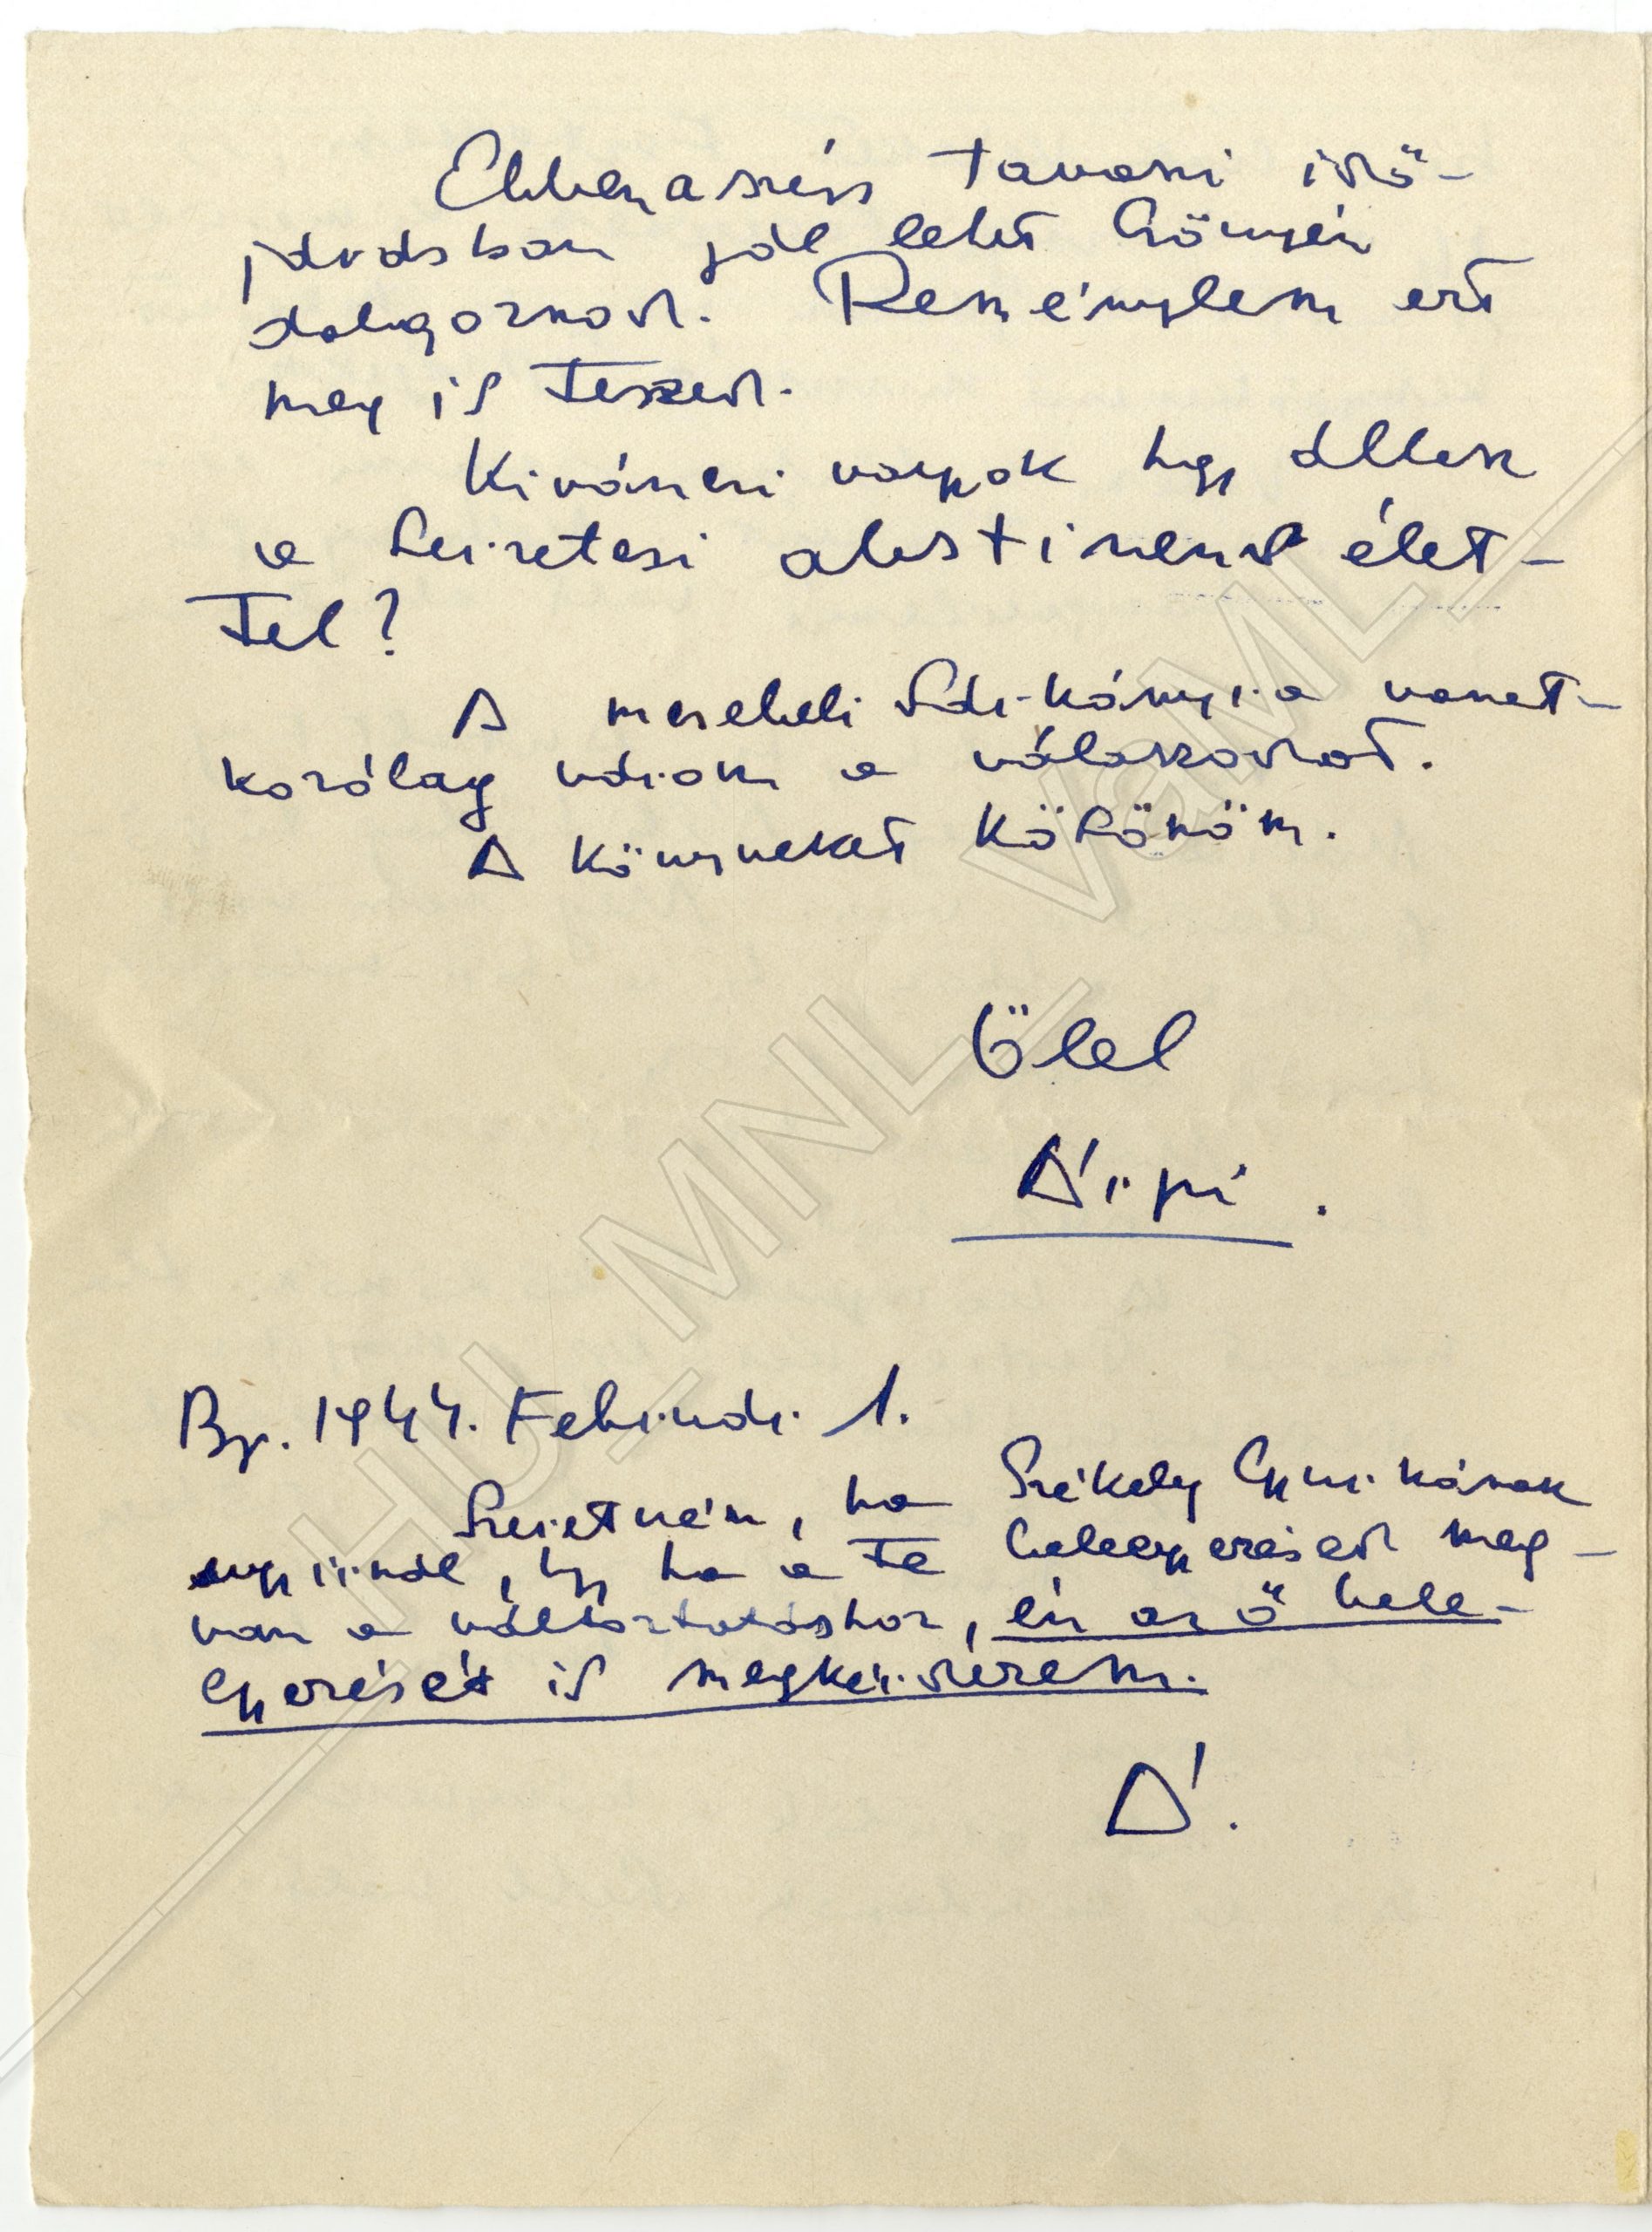 Ebben a szép tavaszi idő-
járásban jól lehet Gönyén
dolgoznod. Remélem ezt
meg is teszed.
Kiváncsi vagyok hogy állsz
a szerzetesi abstinens élet-
tel?
A mesebeli Sárkányra vonat-
kozólag várom a válaszodat.
A könyveket köszönöm.
Ölel
Árpi.
Bp. 1944. Február 1.
Szeretném, ha Székely
úgy írnál, hogy ha a Te beleegyezésed meg-
van a változtatáshoz, én az ő bele-
egyezését is megkérdezem.
Á.
HU_MNL_VeML